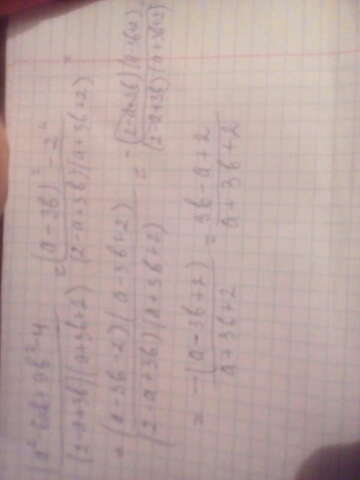 (a²-6ab+9b²-4)/((2-a+3b)(a+3b+2)) = ((a-3b)²-2²)/((2-a+3b)(a+3b+2)) =
= ((a-3b-2)(a-3b+2))/((2-a+3b)(a+3b+2)) = -((2-a+3b)(a-3b+2))/((2-a+3b)(a+3b+2))
= -(a-3b+2)/(a+3b+2) = (3b-a+2)/(a+3b+2)